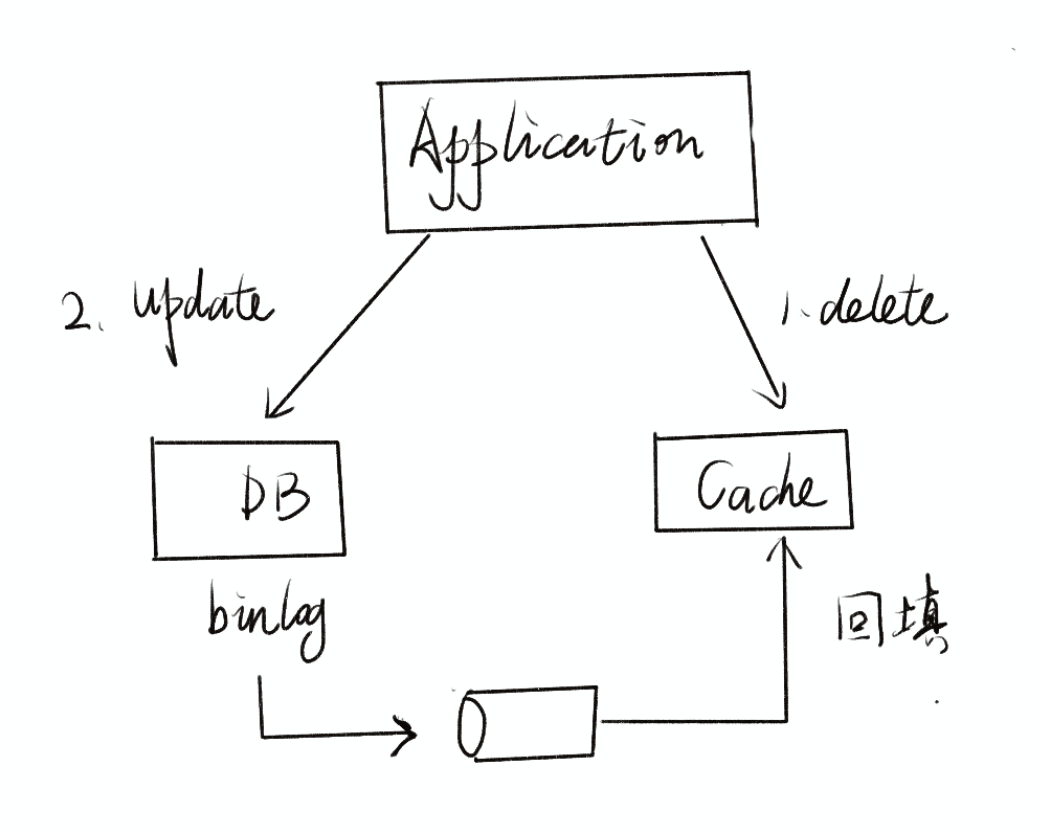 Application
2. update
1. delete
DB
Cache
binlog
回填